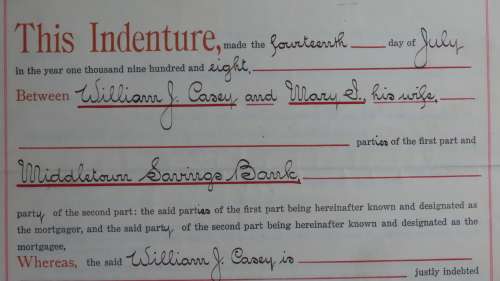 This Indenture, made the fourteenth day of July
in the year one thousand nine hundred and eight,
Between William J. Casey and Mary I., his wife,
parties of the first part and
Middletown Savings Bank,
party of the second part: the said parties of the first part being hereinafter known and designated as
the mortgagor, and the said party of the second part being hereinafter known and designated as the
mortgagee,
Whereas, the said William J. Casey is
justly indebted